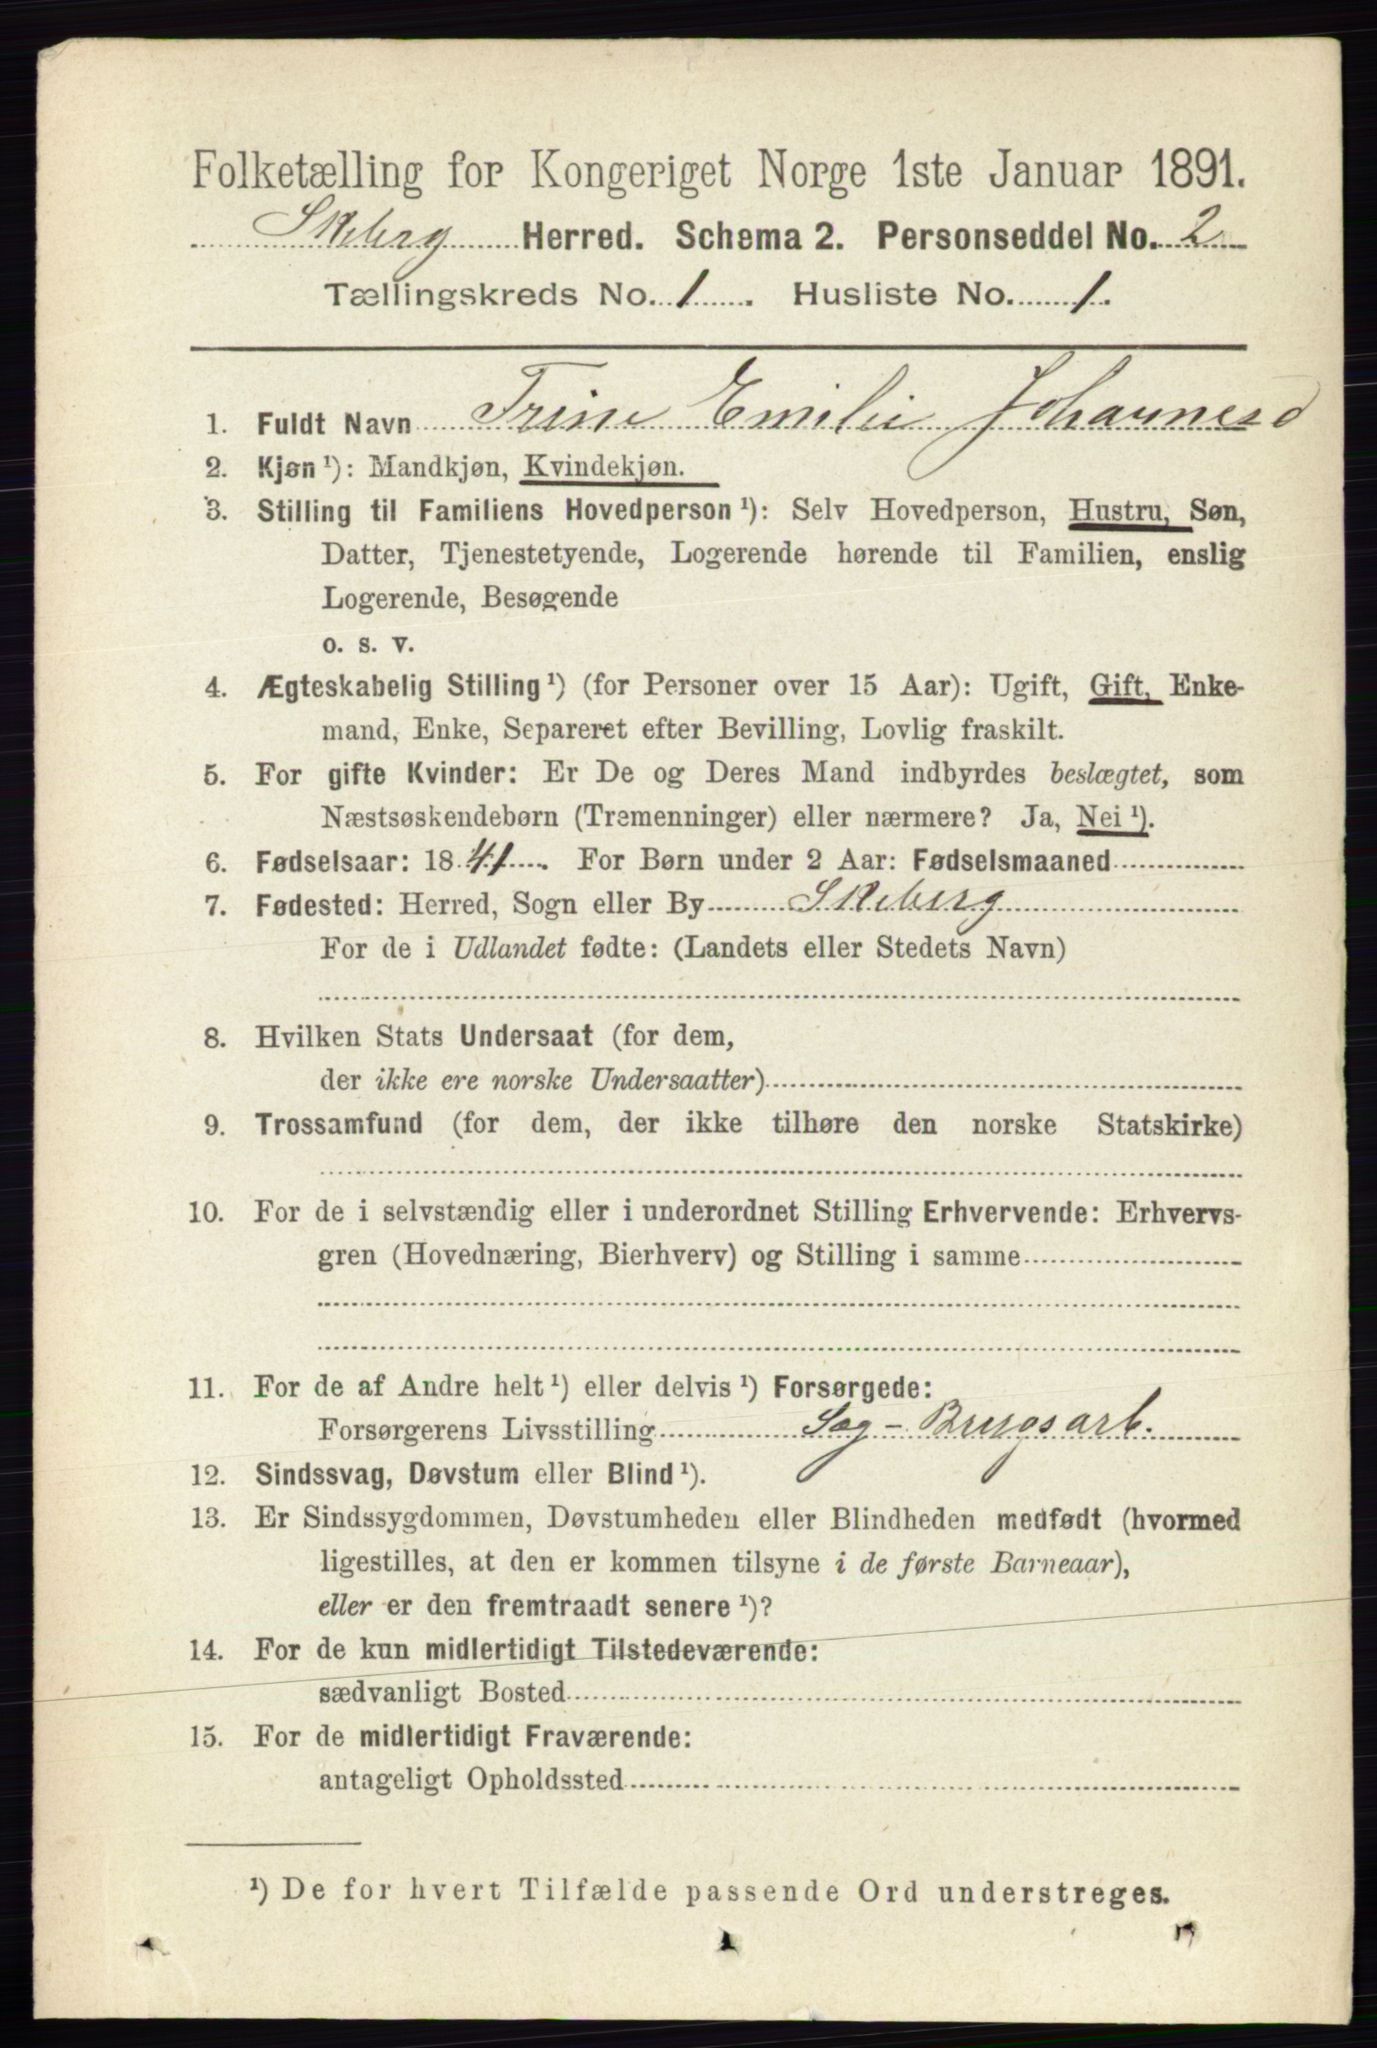 Folketælling for Kongeriget Norge 1ste Januar 1891.
Skeberg Herred. Schema 2. Personseddel No. 2
Tællingskreds No. 1. Husliste No. 1.
1. Fuldt Navn Trine Emilie Johannesd
2. Kjøn ¹): Mandkjøn, Kvindekjøn.
3. Stilling til Familiens Hovedperson ¹): Selv Hovedperson, Hustru, Søn,
Datter, Tjenestetyende, Logerende hørende til Familien, enslig
Logerende, Besøgende
o. s. v.
4. Ægteskabelig Stilling ¹) (for Personer over 15 Aar): Ugift, Gift, Enke-
mand, Enke, Separeret efter Bevilling, Lovlig fraskilt.
5. For gifte Kvinder: Er De og Deres Mand indbyrdes beslægtet, som
Næstsøskendebørn (Tremenninger) eller nærmere? Ja, Nei ¹).
6. Fødselsaar: 1841. For Børn under 2 Aar: Fødselsmaaned
7. Fødested: Herred, Sogn eller By Skeberg
For de i Udlandet fødte: (Landets eller Stedets Navn)
8. Hvilken Stats Undersaat (for dem,
der ikke ere norske Undersaatter)
9. Trossamfund (for dem, der ikke tilhøre den norske Statskirke)
10. For de i selvstændig eller i underordnet Stilling Erhvervende: Erhvervs-
gren (Hovednæring, Bierhverv) og Stilling i samme
11. For de af Andre helt ¹) eller delvis ¹) Forsørgede:
Forsørgerens Livsstilling Sag-Brugsarb.
12. Sindssvag, Døvstum eller Blind ¹).
13. Er Sindssygdommen, Døvstumheden eller Blindheden medfødt (hvormed
ligestilles, at den er kommen tilsyne i de første Barneaar),
eller er den fremtraadt senere ¹)?
14. For de kun midlertidigt Tilstedeværende:
sædvanligt Bosted
15. For de midlertidigt Fraværende:
antageligt Opholdssted
¹) De for hvert Tilfælde passende Ord understreges.